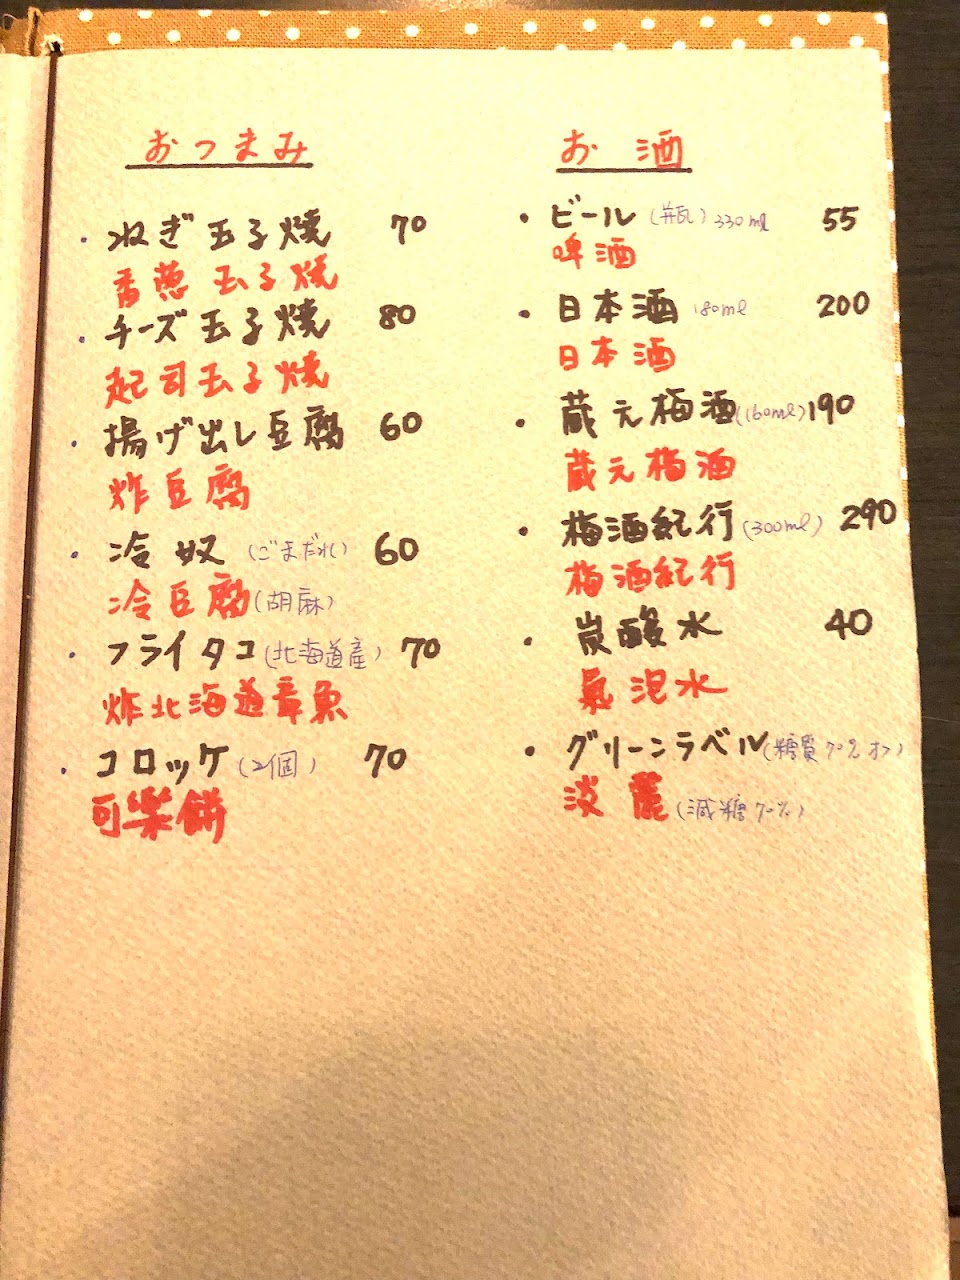 おつまみ
・ねぎ玉子焼 70
香葱玉子燒
・チーズ玉子焼 80
起司玉子燒
・揚げ出し豆腐 60
炸豆腐
・冷奴(ごまだれ) 60
冷豆腐(胡麻)
・フライタコ(北海道産) 70
炸北海道章魚
・コロッケ(2個) 70
可樂餅
お酒
・ビール(瓶)330ml 55
啤酒
・日本酒 180ml 200
日本酒
・蔵元梅酒(160ml) 190
蔵元梅酒
・梅酒紀行(300ml) 290
梅酒紀行
・炭酸水 40
氣泡水
・グリーンラベル(糖質70%オフ)
淡麗(減糖70%)